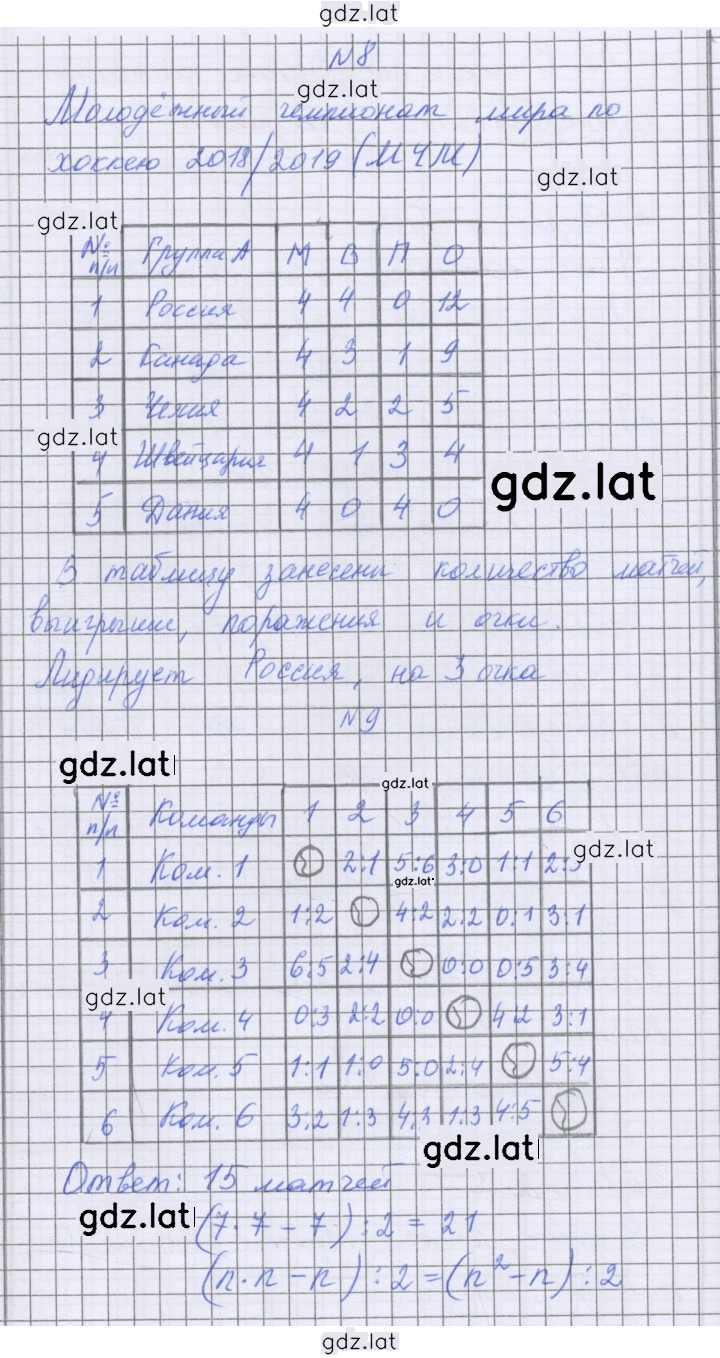 gdz.lat
№8
gdz.lat
Молодёжный чемпионат мира по
хоккею 2018/2019 (МЧМ)
gdz.lat
gdz.lat
№ п/п Группа А М В П О
1 Россия 4 4 0 12
2 Канада 4 3 1 9
3 Чехия 4 2 2 5
gdz.lat
4 Швейцария 4 1 3 4
gdz.lat
5 Дания 4 0 4 0
В таблицу занесены количество матчей,
выигрыши, поражения и очки.
Лидирует Россия, на 3 очка
№9
gdz.lat
gdz.lat
№ п/п Команды 1 2 3 4 5 6
gdz.lat
1 Ком. 1 2:1 5:6 3:0 1:1 2:3
gdz.lat
2 Ком. 2 1:2 4:2 2:2 0:1 3:1
3 Ком. 3 6:5 2:4 0:0 0:5 3:4
gdz.lat
4 Ком. 4 0:3 2:2 0:0 4:2 3:1
5 Ком. 5 1:1 1:0 5:0 2:4 5:4
6 Ком. 6 3:2 1:3 4:3 1:3 4:5
gdz.lat
Ответ: 15 матчей
gdz.lat
(7·7-7):2=21
(n·n-n):2=(n²-n):2
gdz.lat